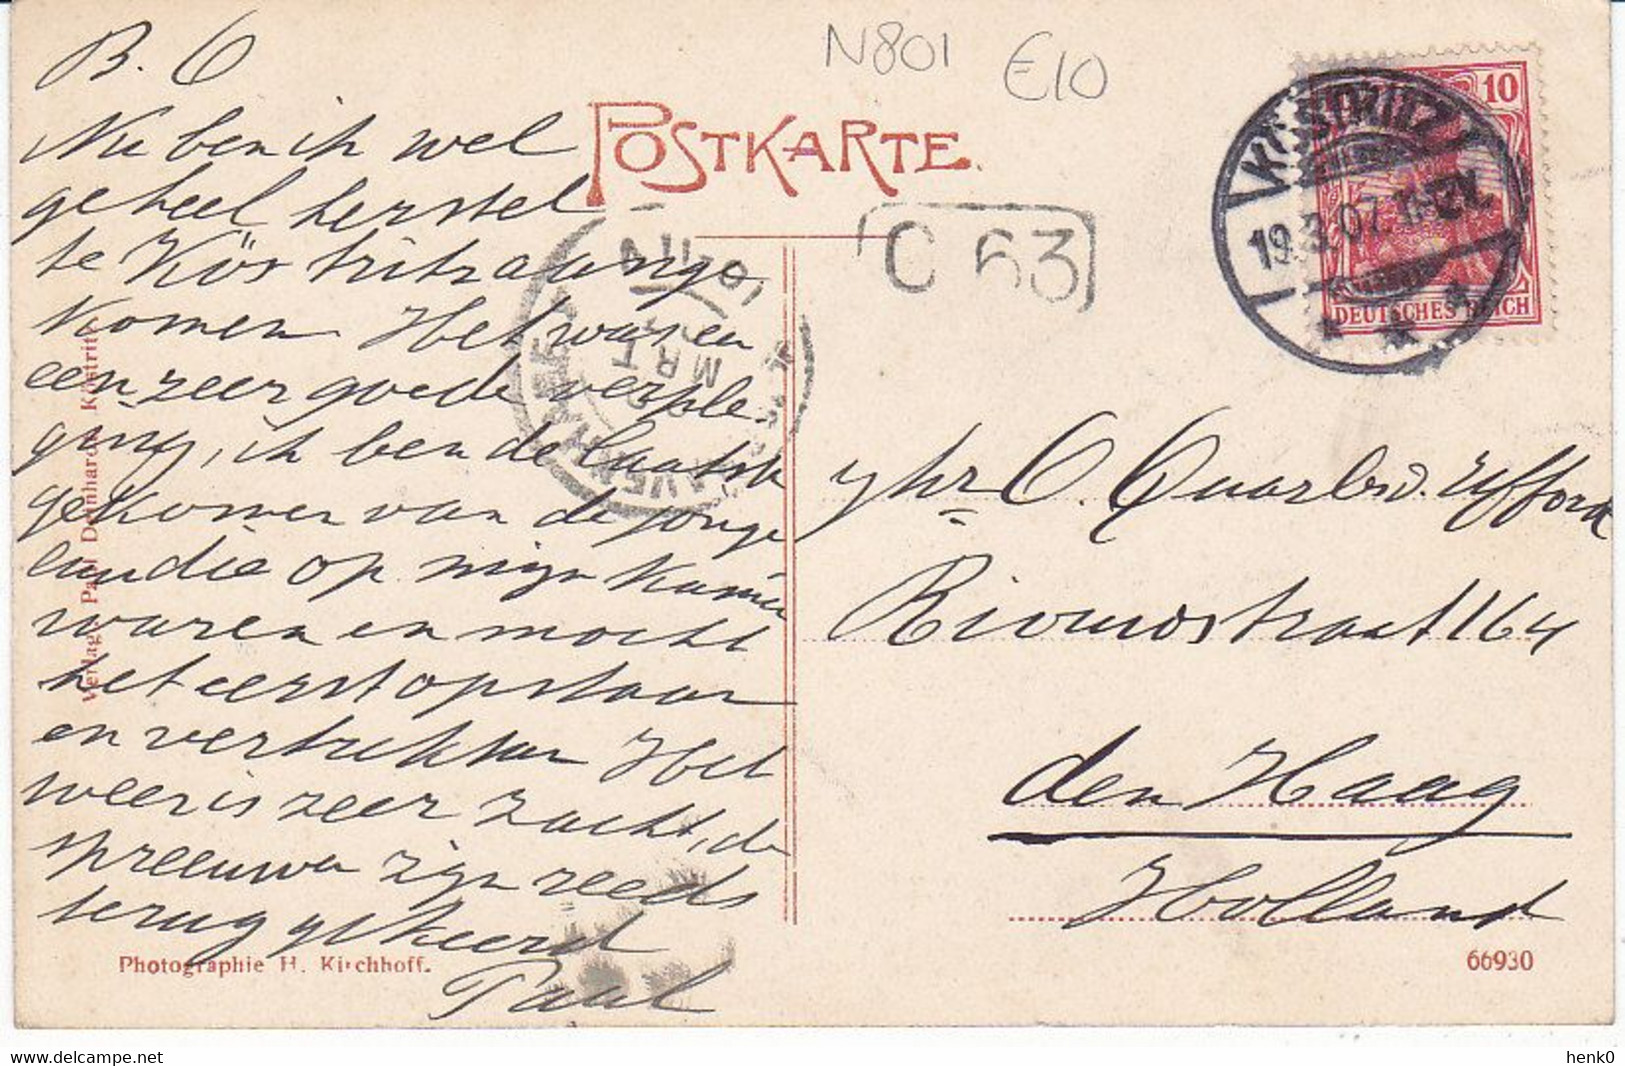 N801
€10
B. 6
Nu ben ik wel
geheel herstel
te Köstritz aange
komen Het was een
een zeer goede verple
ging, ik ben de laatste
gekomen van de jonge
die op mijn kamer
waren en mocht
het eerst opstaan
en vertrekken Het
weer is zeer zacht, de
spreeuwen zijn reeds
teruggekeerd
Paul
POSTKARTE.
C 63
10
DEUTSCHES REICH
KÖSTRITZ
19.3.07.
'SGRAVENHAGE
MRT
Yhr C. Quarles v. Ufford
Riouwstraat 164
den Haag
Holland
Verlag: Paul Deinhardt, Köstritz.
Photographie H. Kirchhoff.
66930
henk0